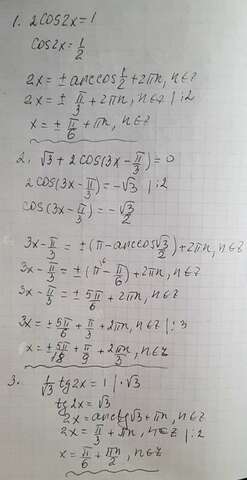 1. 2cos2x=1
cos2x=1/2
2x=±arccos 1/2+2πn, n∈z
2x=± π/3+2πn, n∈z |:2
x=± π/6+πn, n∈z
2. √3+2cos(3x-π/3)=0
2cos(3x-π/3)=-√3 |:2
cos(3x-π/3)=-√3/2
3x-π/3=±(π-arccos√3/2)+2πn, n∈z
3x-π/3=±(π-π/6)+2πn, n∈z
3x-π/3=± 5π/6+2πn, n∈z
3x=± 5π/6+π/3+2πn, n∈z |:3
x=± 5π/18+π/9+2πn/3, n∈z
3. 1/√3 tg2x=1 |·√3
tg2x=√3
2x=arctg√3+πn, n∈z
2x=π/3+πn, n∈z |:2
x=π/6+πn/2, n∈z